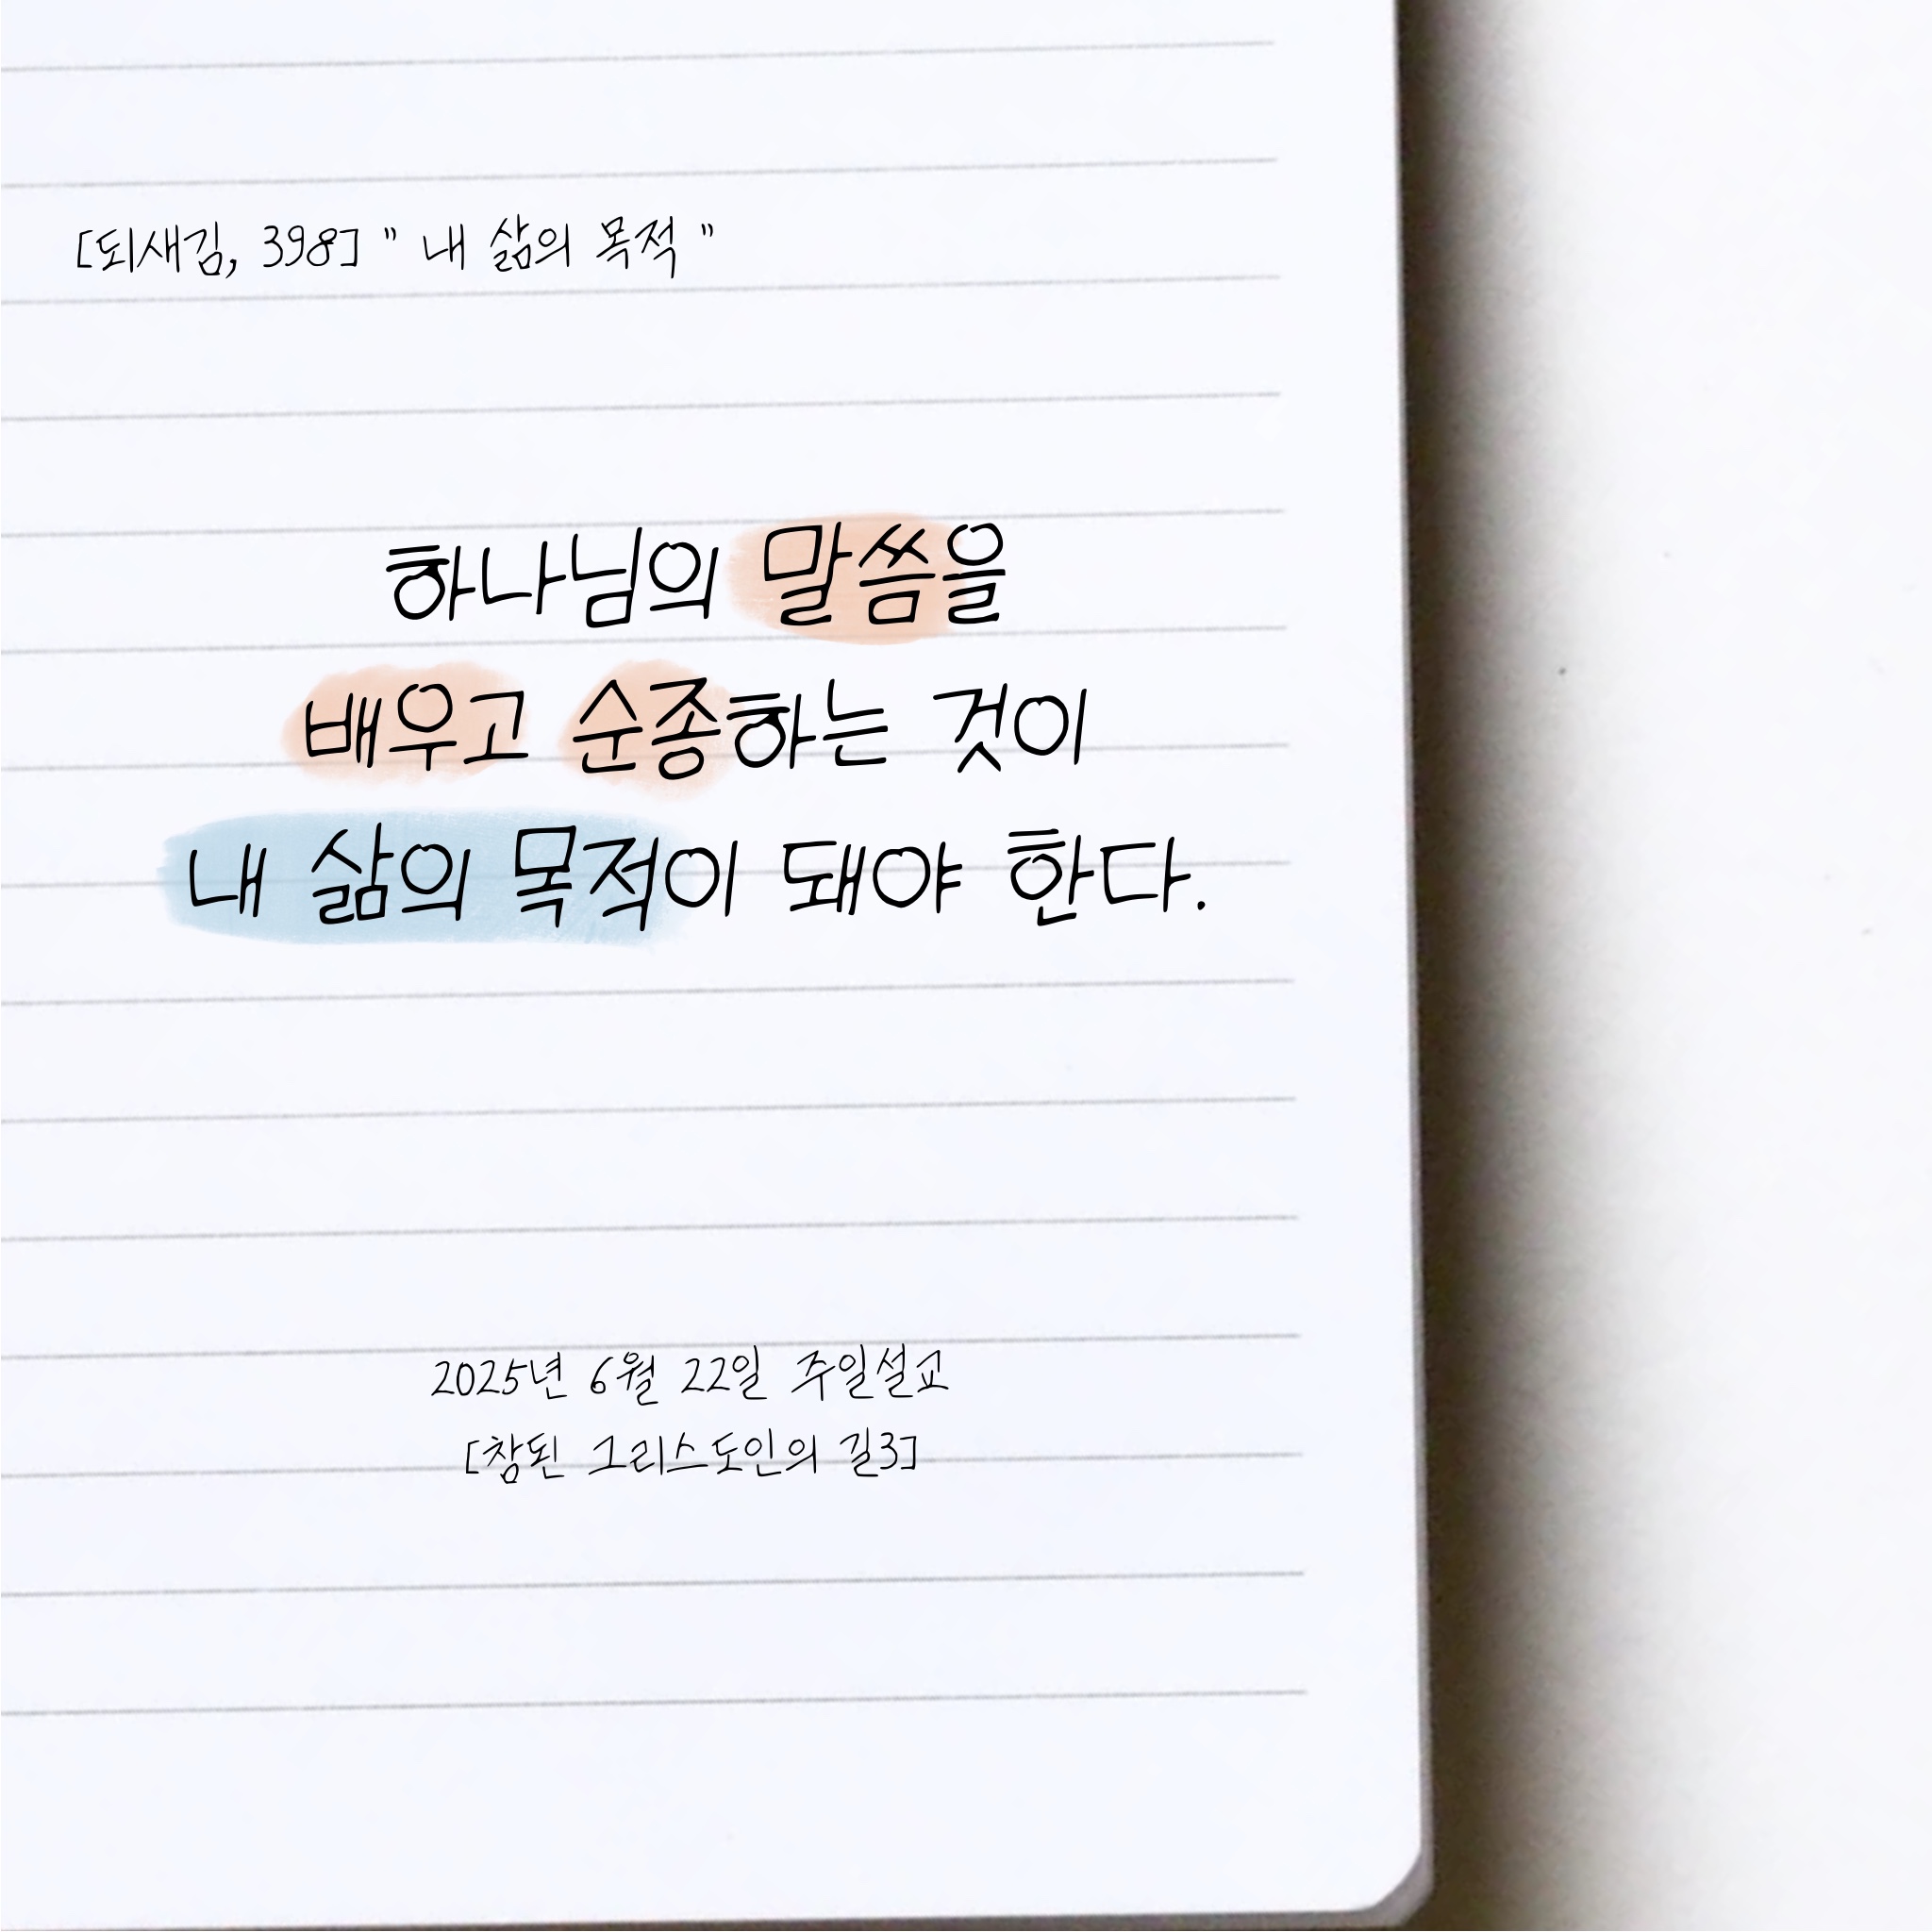 [되새김, 398] " 내 삶의 목적 "
하나님의 말씀을
배우고 순종하는 것이
내 삶의 목적이 돼야 한다.
2025년 6월 22일 주일설교
[참된 그리스도인의 길3]